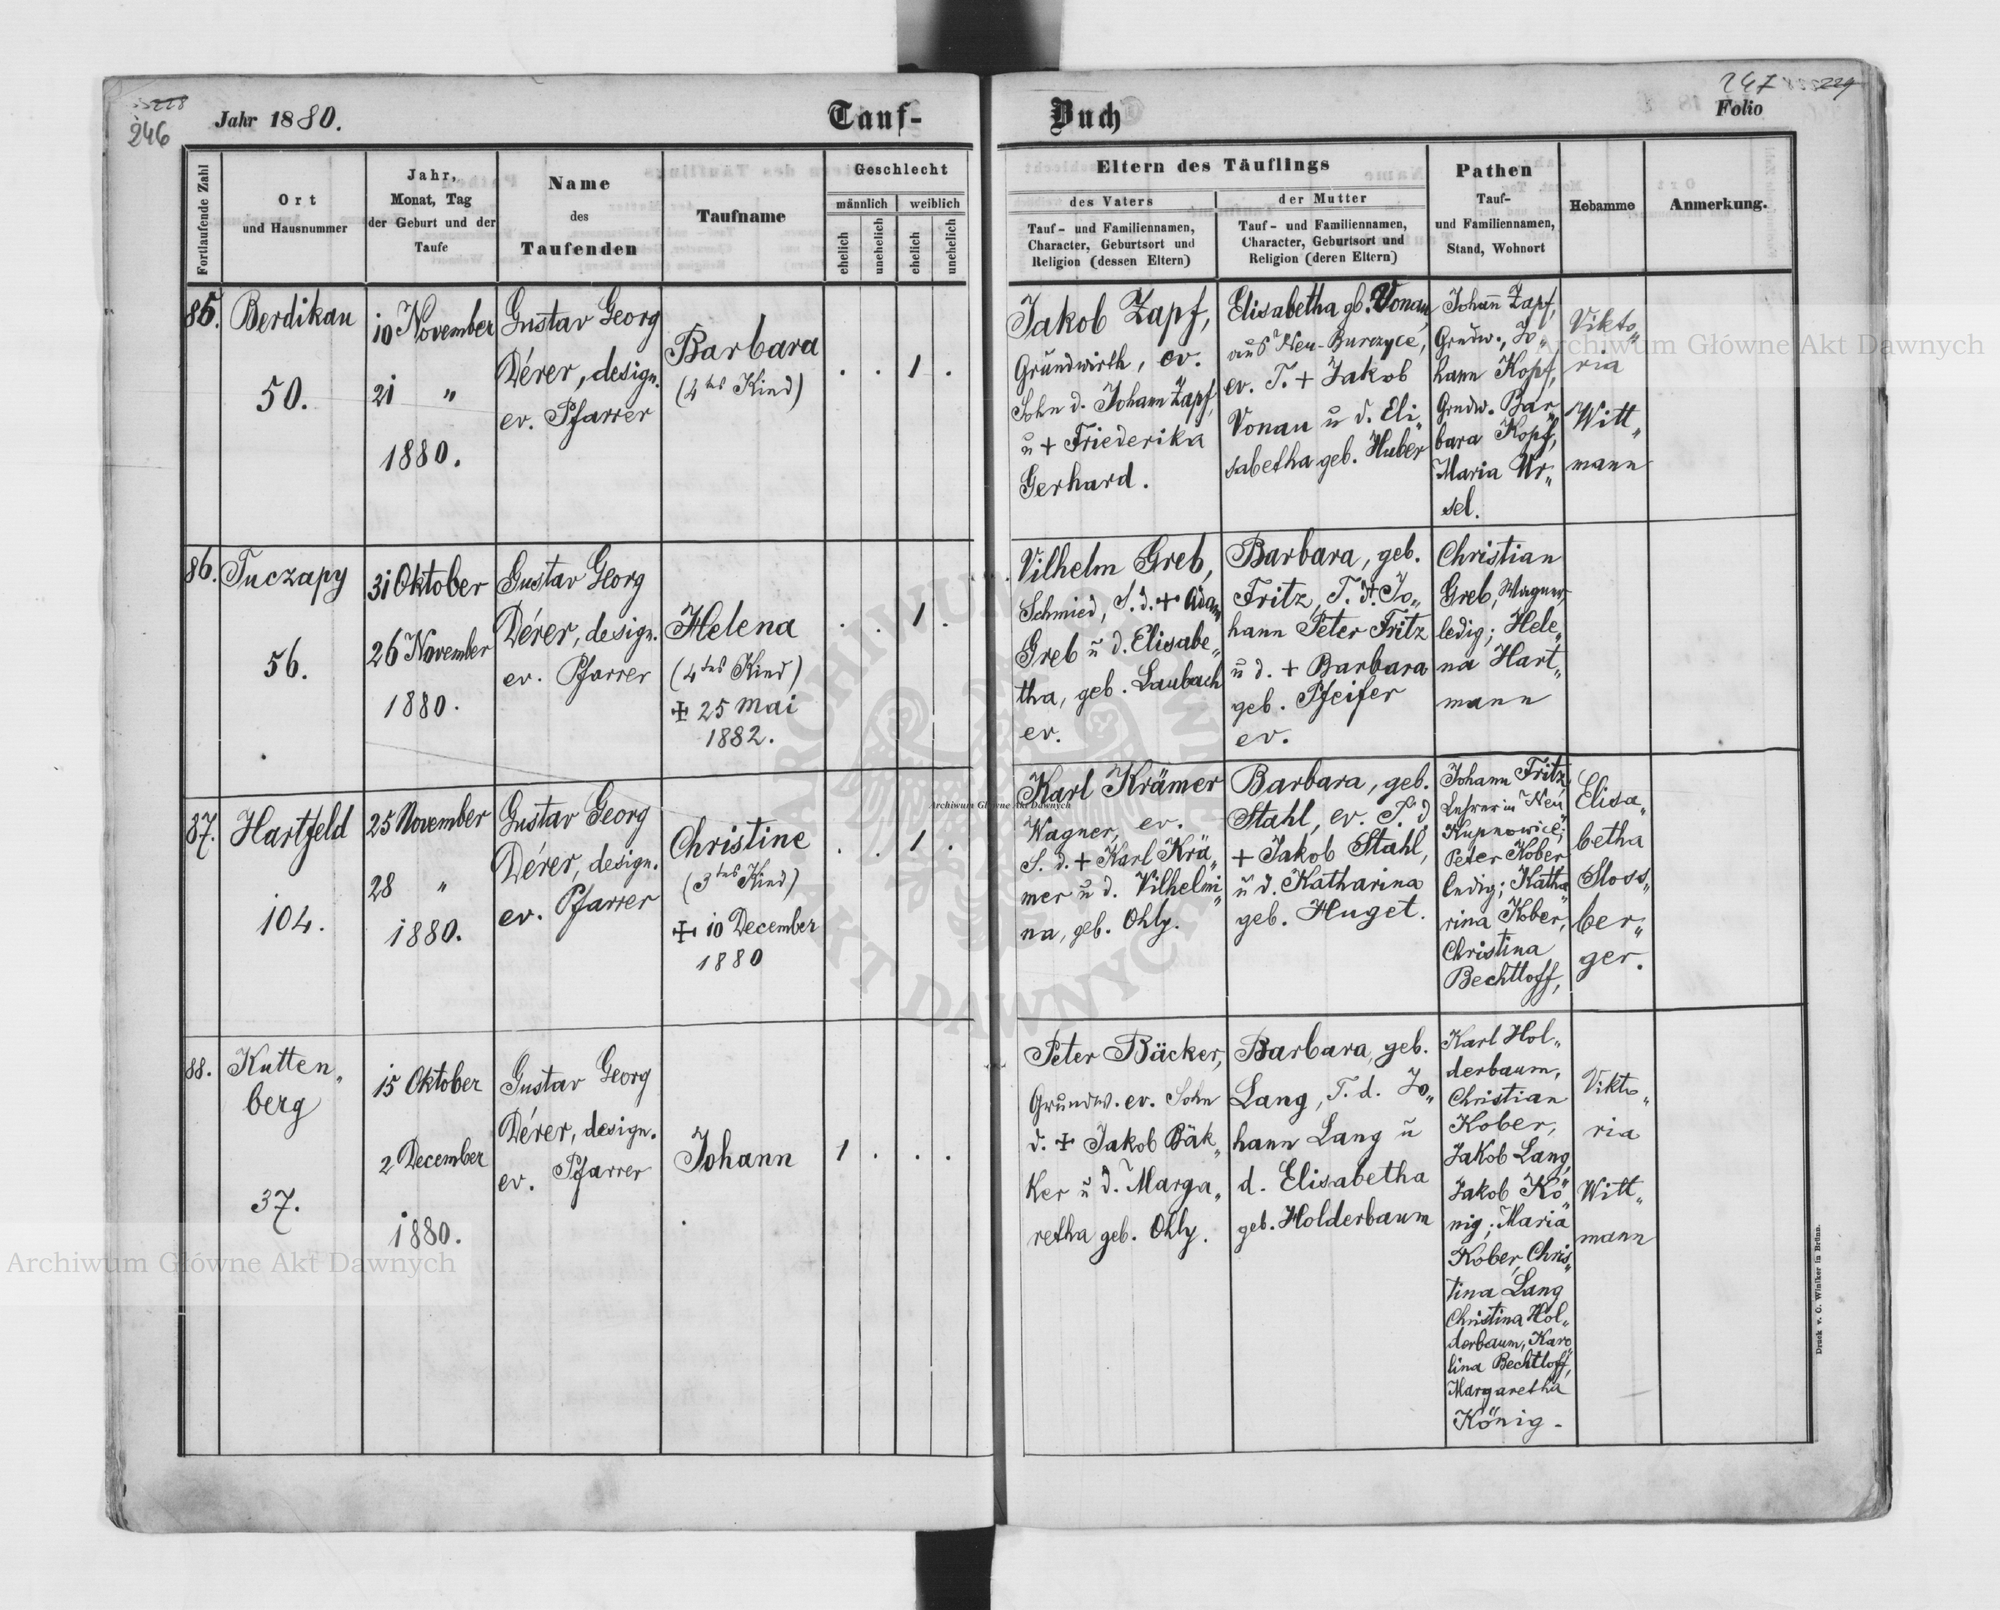 246
Jahr 1880.
Tauf-
Fortlaufende Zahl
Ort
und Hausnummer
Jahr,
Monat, Tag
der Geburt und der
Taufe
Name
des
Taufenden
Taufname
Geschlecht
männlich
weiblich
ehelich
unehelich
ehelich
unehelich
85.
Berdikau
50.
10 November
21 "
1880.
Gustav Georg
Dérer, design.
ev. Pfarrer
Barbara
(4tes Kind)
. . 1 .
86.
Tuczapy
56.
31 Oktober
26 November
1880.
Gustav Georg
Dérer, design.
ev. Pfarrer
Helena
(4tes Kind)
+ 25 Mai
1882.
. . 1 .
87.
Hartfeld
104.
25 November
28 "
1880.
Gustav Georg
Dérer, design.
ev. Pfarrer
Christine
(3tes Kind)
+ 10 December
1880
. . 1 .
88.
Kutten„
berg
37.
15 Oktober
2 December
1880.
Gustav Georg
Dérer, design.
ev. Pfarrer
Johann
1 . . .
247
229
Buch
Folio
Eltern des Täuflings
des Vaters
Tauf- und Familiennamen,
Character, Geburtsort und
Religion (dessen Eltern)
der Mutter
Tauf- und Familiennamen,
Character, Geburtsort und
Religion (deren Eltern)
Pathen
Tauf-
und Familiennamen,
Stand, Wohnort
Hebamme
Anmerkung.
Jakob Zapf,
Grundwirth, ev.
Sohn d. Johann Zapf,
u + Friederika
Gerhard.
Elisabetha gb. Vonau,
aus Neu-Burczyce,
ev. T. + Jakob
Vonau u d. Eli„
sabetha geb. Huber
Johann Zapf,
Grudw., Jo„
hann Kopf,
Grudw. Bar„
bara Kopf,
Maria Ur„
sel.
Vikto„
ria
Witt„
mann
Vilhelm Greb,
Schmied, S. d. + Adam
Greb u d. Elisabe„
tha, geb. Laubach
ev.
Barbara, geb.
Fritz, T. d. Jo„
hann Peter Fritz
u d. + Barbara
geb. Pfeifer
ev.
Christian
Greb, Wagner,
ledig; Hele„
na Hart„
mann
Karl Krämer
Wagner, ev.
S. d. + Karl Krä„
mer u d. Vilhelmi„
na, geb. Ohly.
Barbara, geb.
Stahl, ev. T. d
+ Jakob Stahl,
u d. Katharina
geb. Huget.
Johann Fritz,
Lehrer in Neu
Kupnowice;
Peter Kober
ledig; Katha„
rina Kober,
Christina
Bechtloff,
Elisa„
betha
Sloss„
ber„
ger.
Peter Bäcker,
Grundw. ev. Sohn
d. + Jakob Bäk„
ker u d. Marga„
retha geb. Ohly.
Barbara, geb.
Lang, T. d. Jo„
hann Lang u
d. Elisabetha
geb. Holderbaum
Karl Hol„
derbaum,
Christian
Kober,
Jakob Lang,
Jakob Kö„
nig; Maria
Kober, Chris„
tina Lang
Christina Hol„
derbaum, Karo„
lina Bechtloff,
Margaretha
König -
Vikto„
ria
Witt„
mann
Druck v. C. Winiker in Brünn.
Archiwum Główne Akt Dawnych
Archiwum Główne Akt Dawnych
Archiwum Główne Akt Dawnych